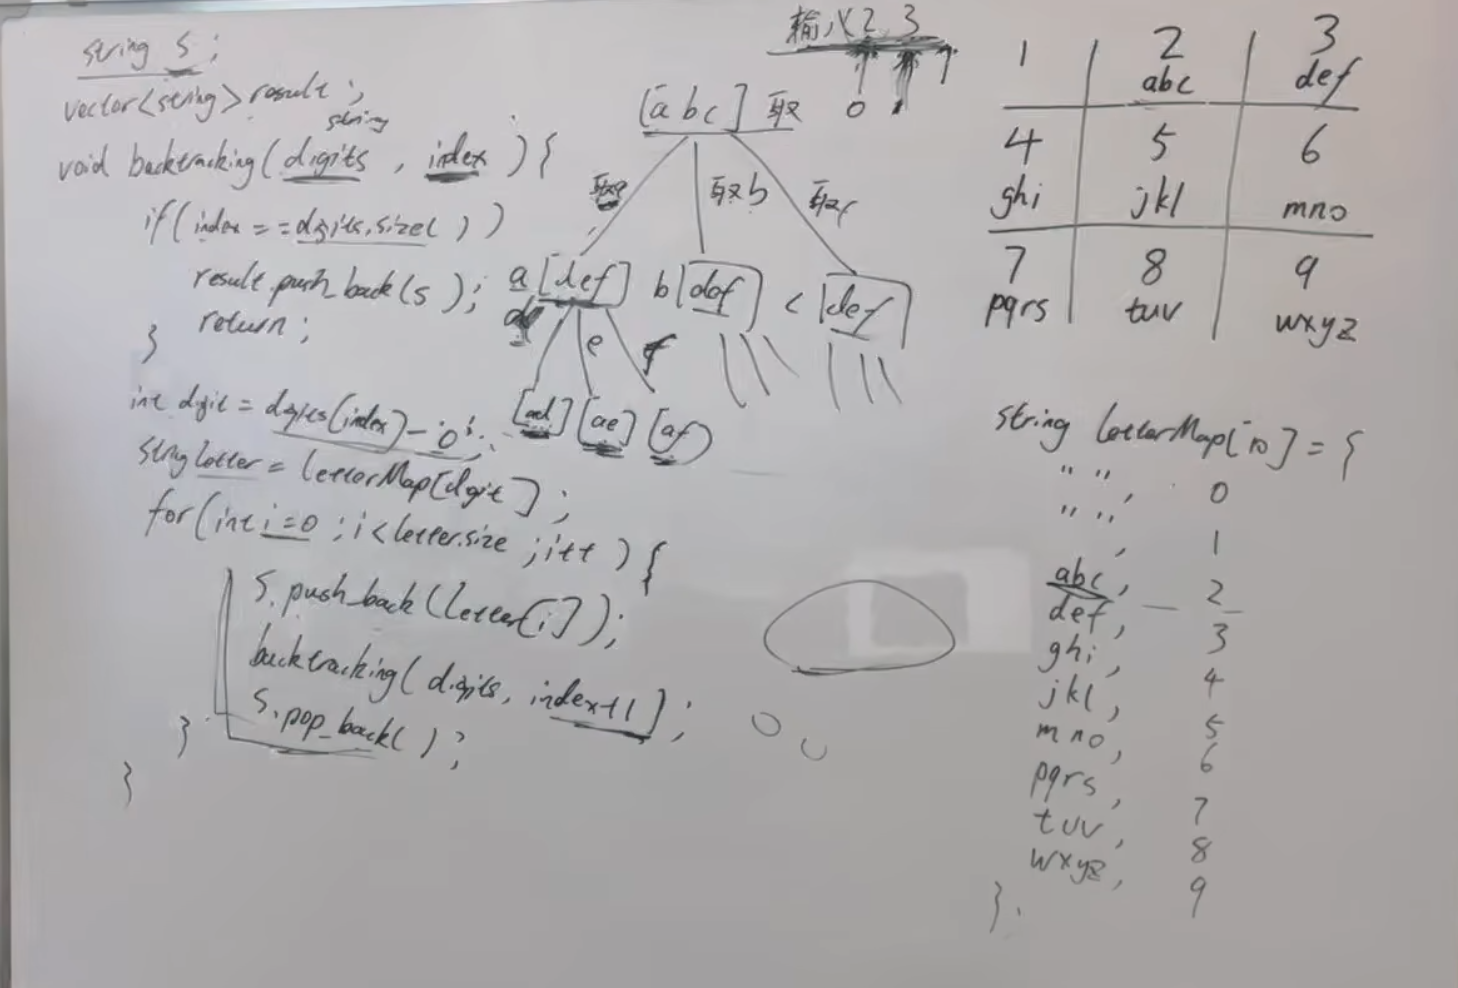 string s;
vector<string> result;
string
void backtracking(digits , index ){
if( index == digits.size( ) )
result.push_back(s );
return;
}
int digit = digits(index) - '0';
string letter = letterMap[digit ];
for(int i=0 ; i<letter.size ; i++ ) {
s.push_back(letter[i]);
backtracking( digits, index+1);
s.pop_back( );
}
}
输入2 3
0 1
[abc] 取
取a 取b 取c
a[def] b[def] c[def]
d e f
[ad] [ae] [af]
1 2 3
abc def
4 5 6
ghi jkl mno
7 8 9
pqrs tuv wxyz
string letterMap[10] = {
" ", 0
" ", 1
abc, 2
def, — 3
ghi, 4
jkl, 5
mno, 6
pqrs, 7
tuv, 8
wxyz, 9
}.